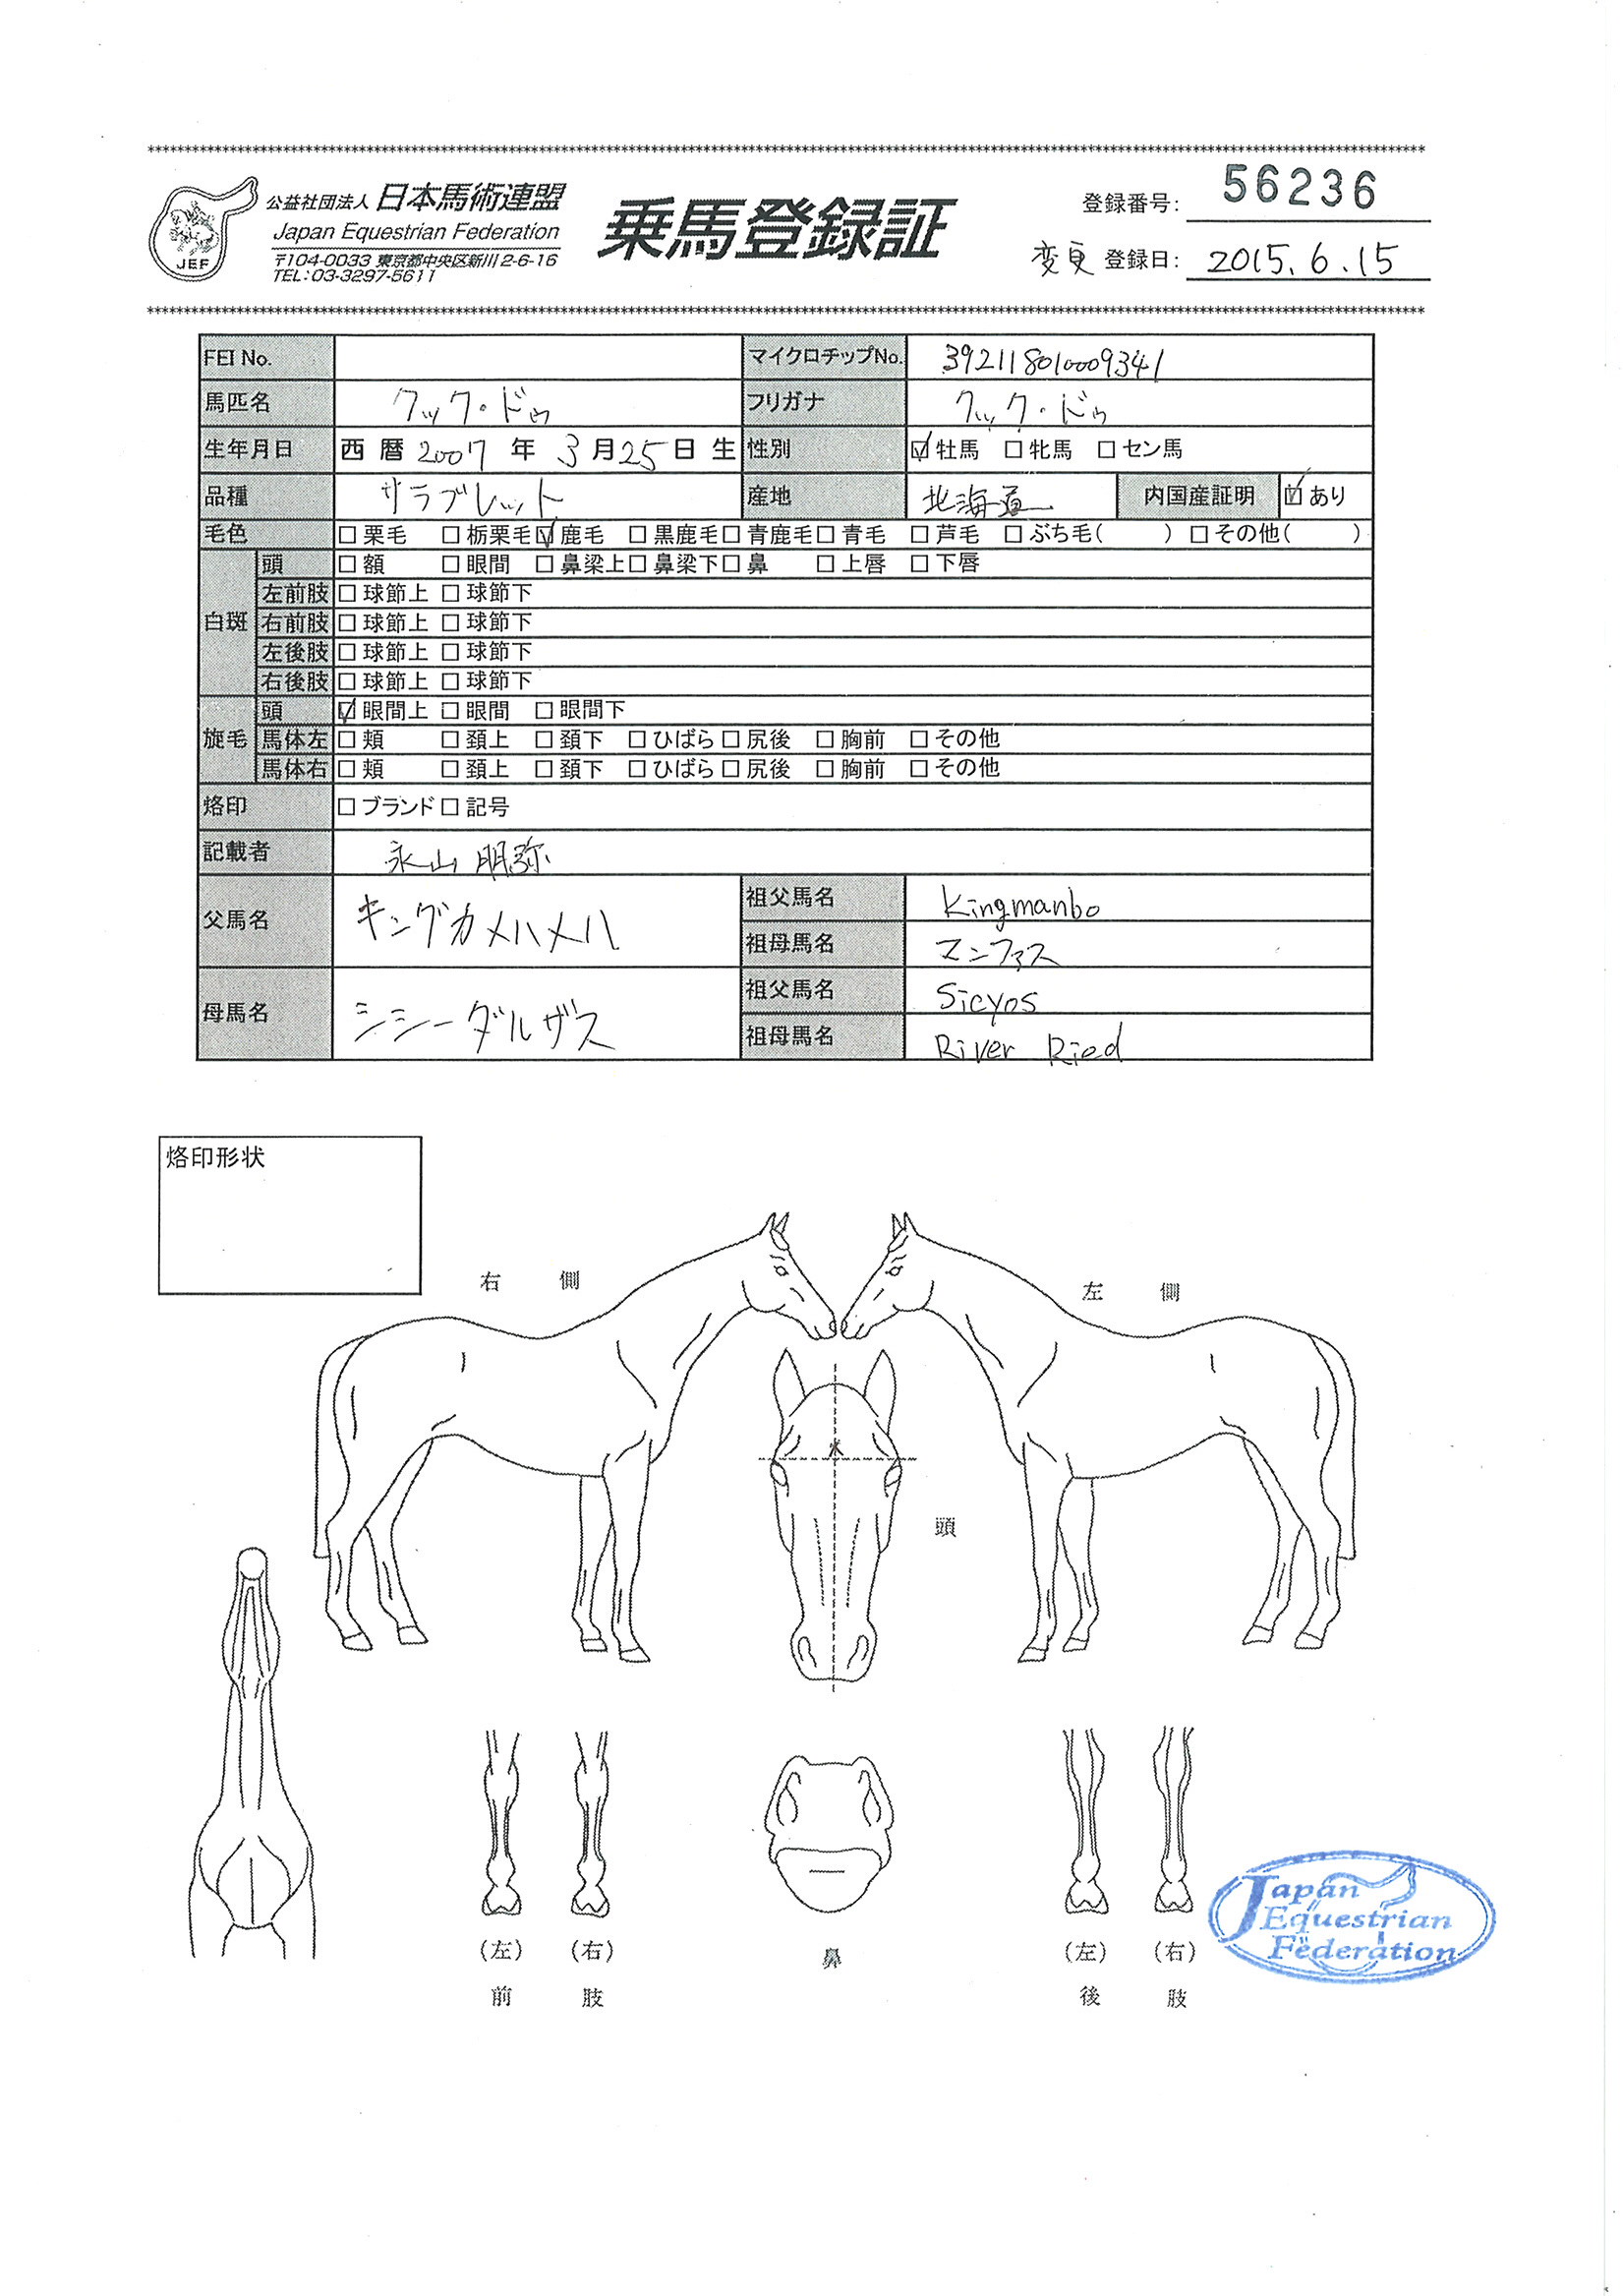 公益社団法人 日本馬術連盟
Japan Equestrian Federation
〒104-0033 東京都中央区新川2-6-16
TEL:03-3297-5611
JEF
乗馬登録証
登録番号: 56236
変更 登録日: 2015.6.15
FEI No. マイクロチップNo. 392118010009341
馬匹名 クック・ドゥ フリガナ クック・ドゥ
生年月日 西暦 2007 年 3 月 25 日 生 性別 ☑牡馬 □牝馬 □セン馬
品種 サラブレット 産地 北海道 内国産証明 ☑あり
毛色 □栗毛 □栃栗毛 ☑鹿毛 □黒鹿毛 □青鹿毛 □青毛 □芦毛 □ぶち毛( ) □その他( )
白斑 頭 □額 □眼間 □鼻梁上 □鼻梁下 □鼻 □上唇 □下唇
左前肢 □球節上 □球節下
右前肢 □球節上 □球節下
左後肢 □球節上 □球節下
右後肢 □球節上 □球節下
旋毛 頭 ☑眼間上 □眼間 □眼間下
馬体左 □頬 □頚上 □頚下 □ひばら □尻後 □胸前 □その他
馬体右 □頬 □頚上 □頚下 □ひばら □尻後 □胸前 □その他
烙印 □ブランド □記号
記載者 永山 明弥
父馬名 キングカメハメハ 祖父馬名 Kingmanbo
祖母馬名 マンファス
母馬名 シシーダルザス 祖父馬名 Sicyos
祖母馬名 River Ried
烙印形状
右側 左側
頭
(左) (右) 鼻 (左) (右)
前肢 後肢
Japan
Equestrian
Federation